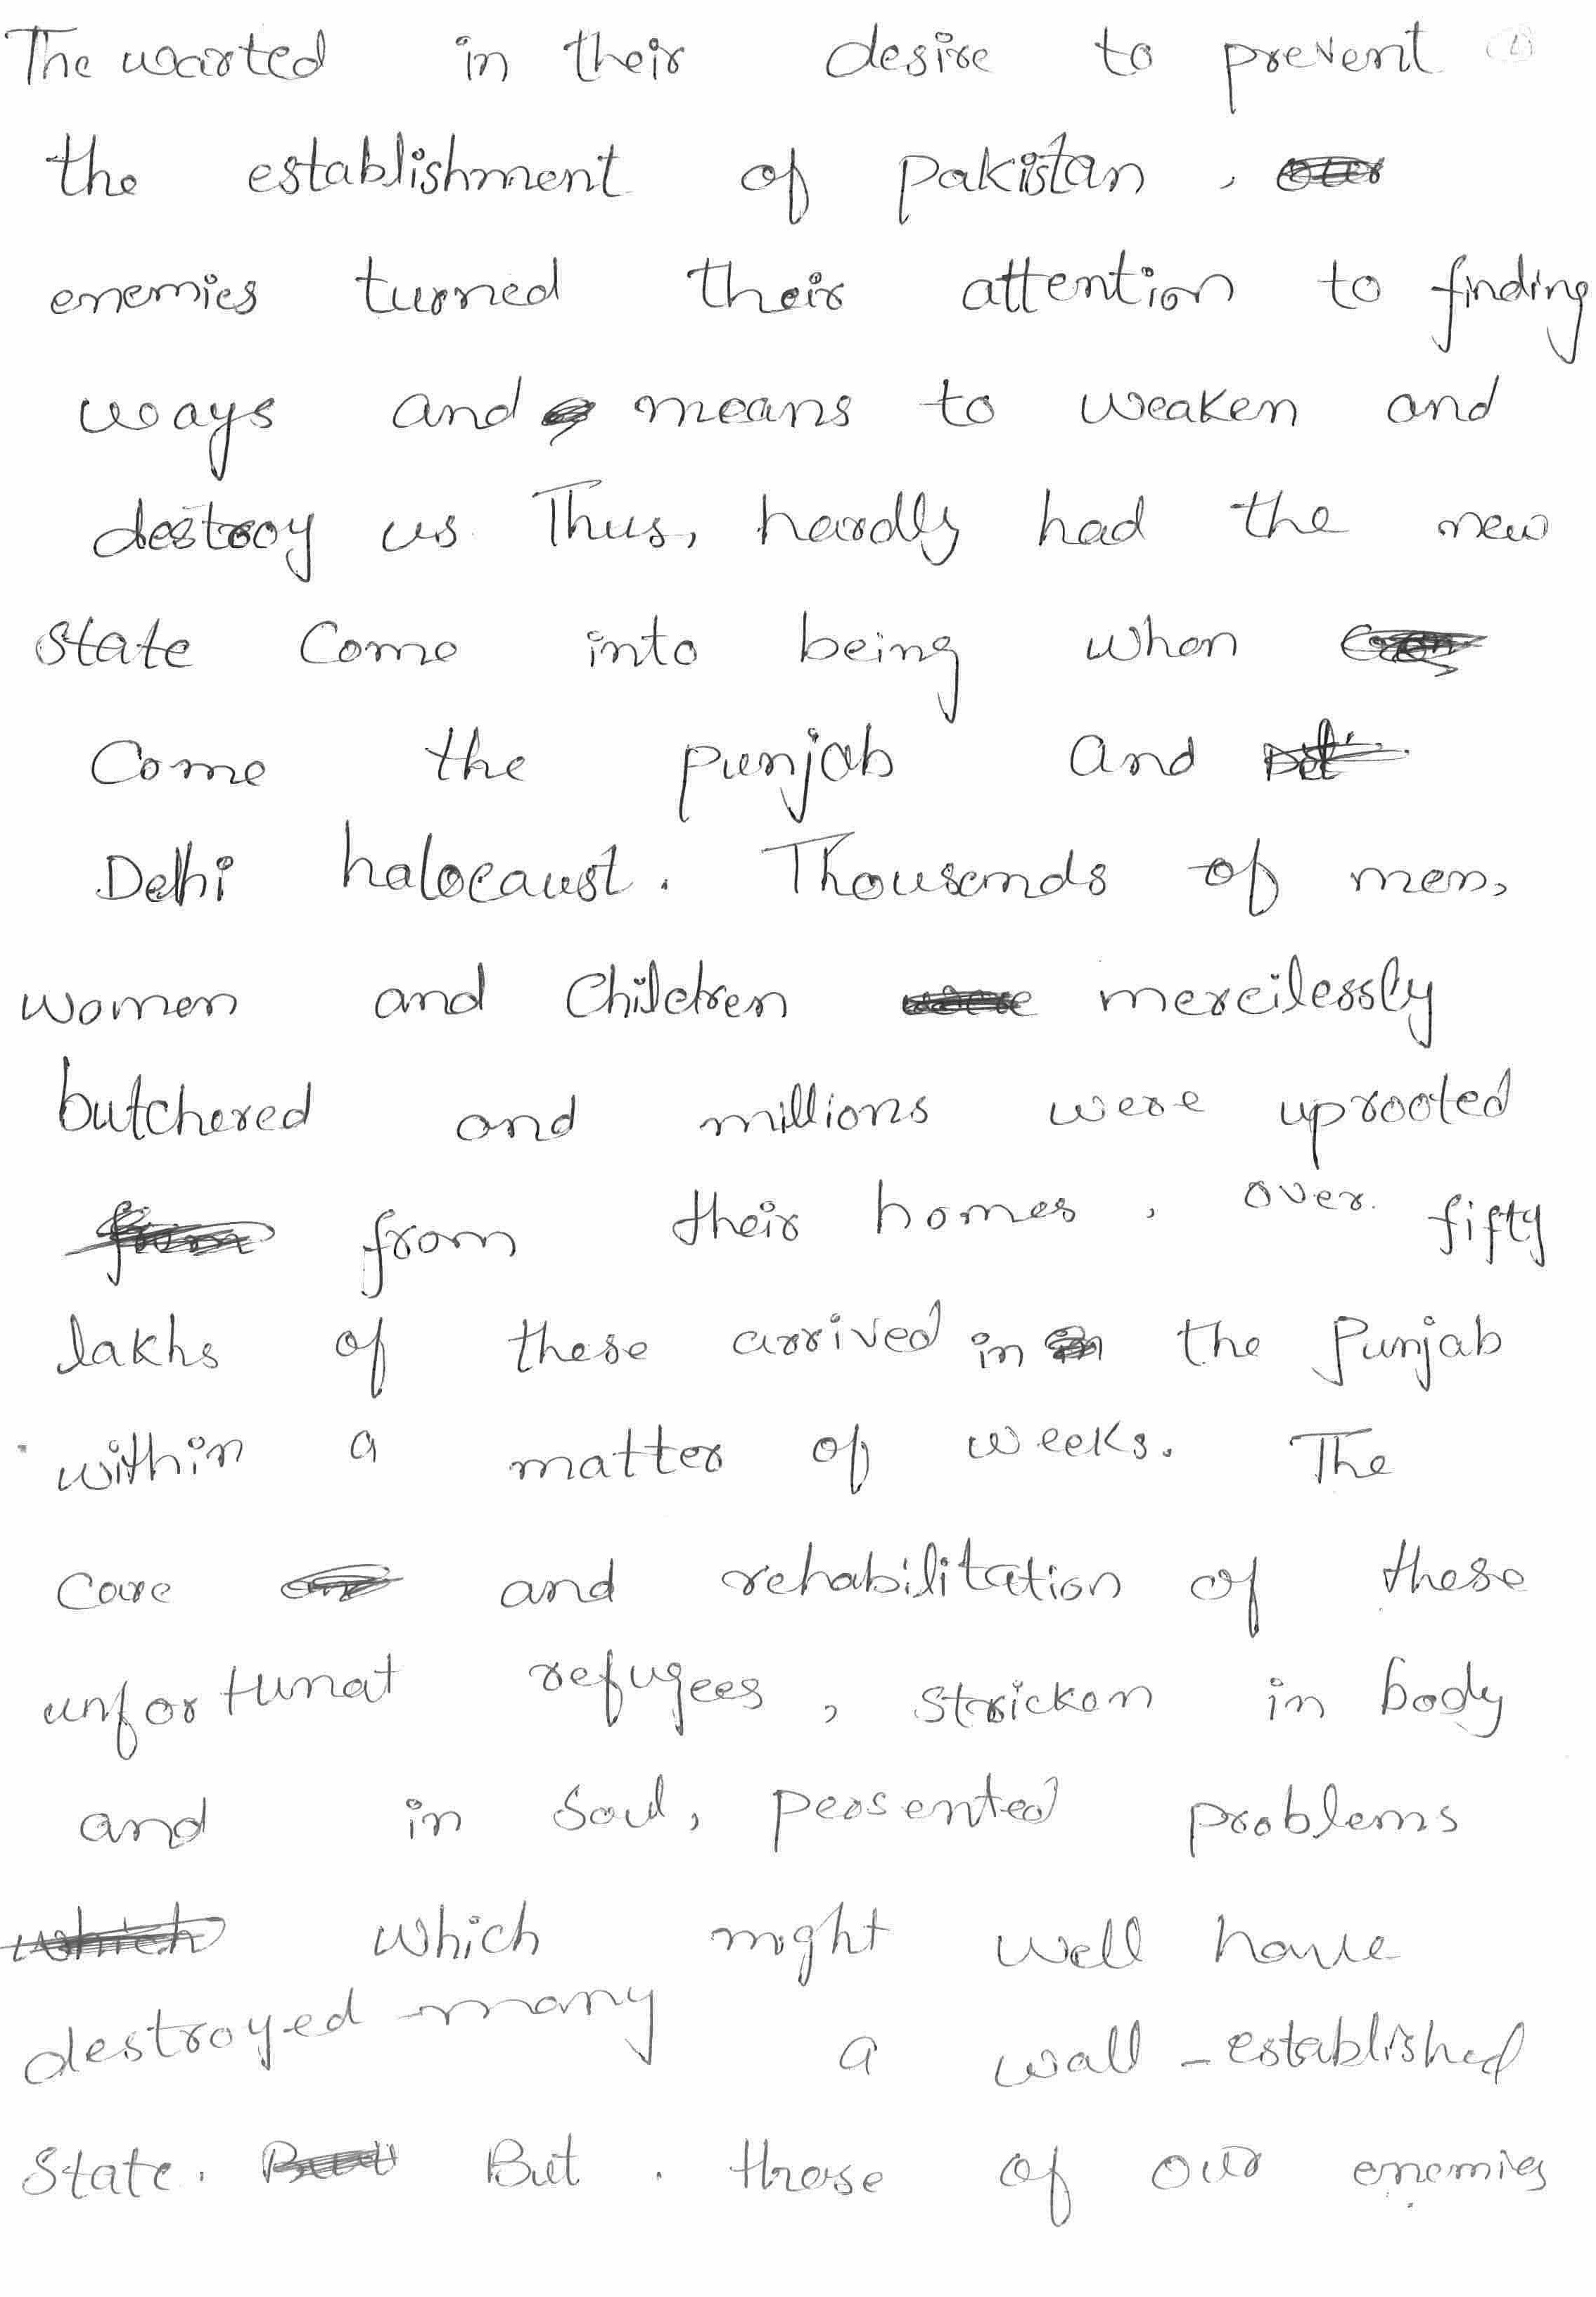 The warted in their desire to prevent
the establishment of pakistan ,
enemies turned their attention to finding
ways and means to weaken and
destroy us. Thus, hardly had the new
state Come into being when
Come the punjab and
Delhi halocaust. Thousands of men,
women and Children mercilessly
butchered and millions were uprooted
from their homes , over. fifty
lakhs of these arrived in the Punjab
within a matter of weeks. The
Care and rehabilitation of these
unfortunat refugees , stricken in body
and in Soul, peosented problems
which might well have
destroyed many a wall-established
State. But . those of our enemies